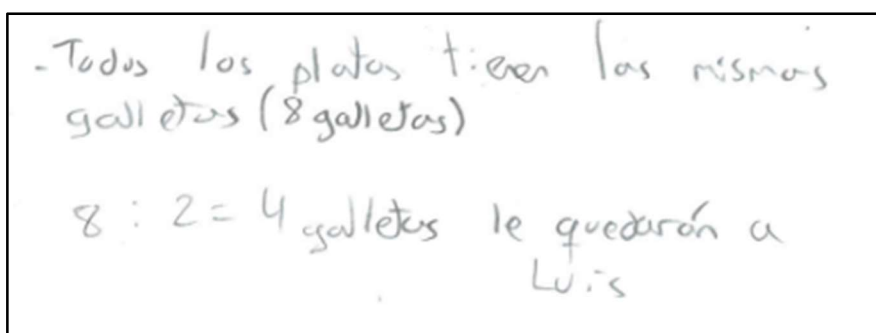 - Todos los platos tienen las mismas
galletas (8 galletas)
8 : 2 = 4 galletas le quedarán a
Luis